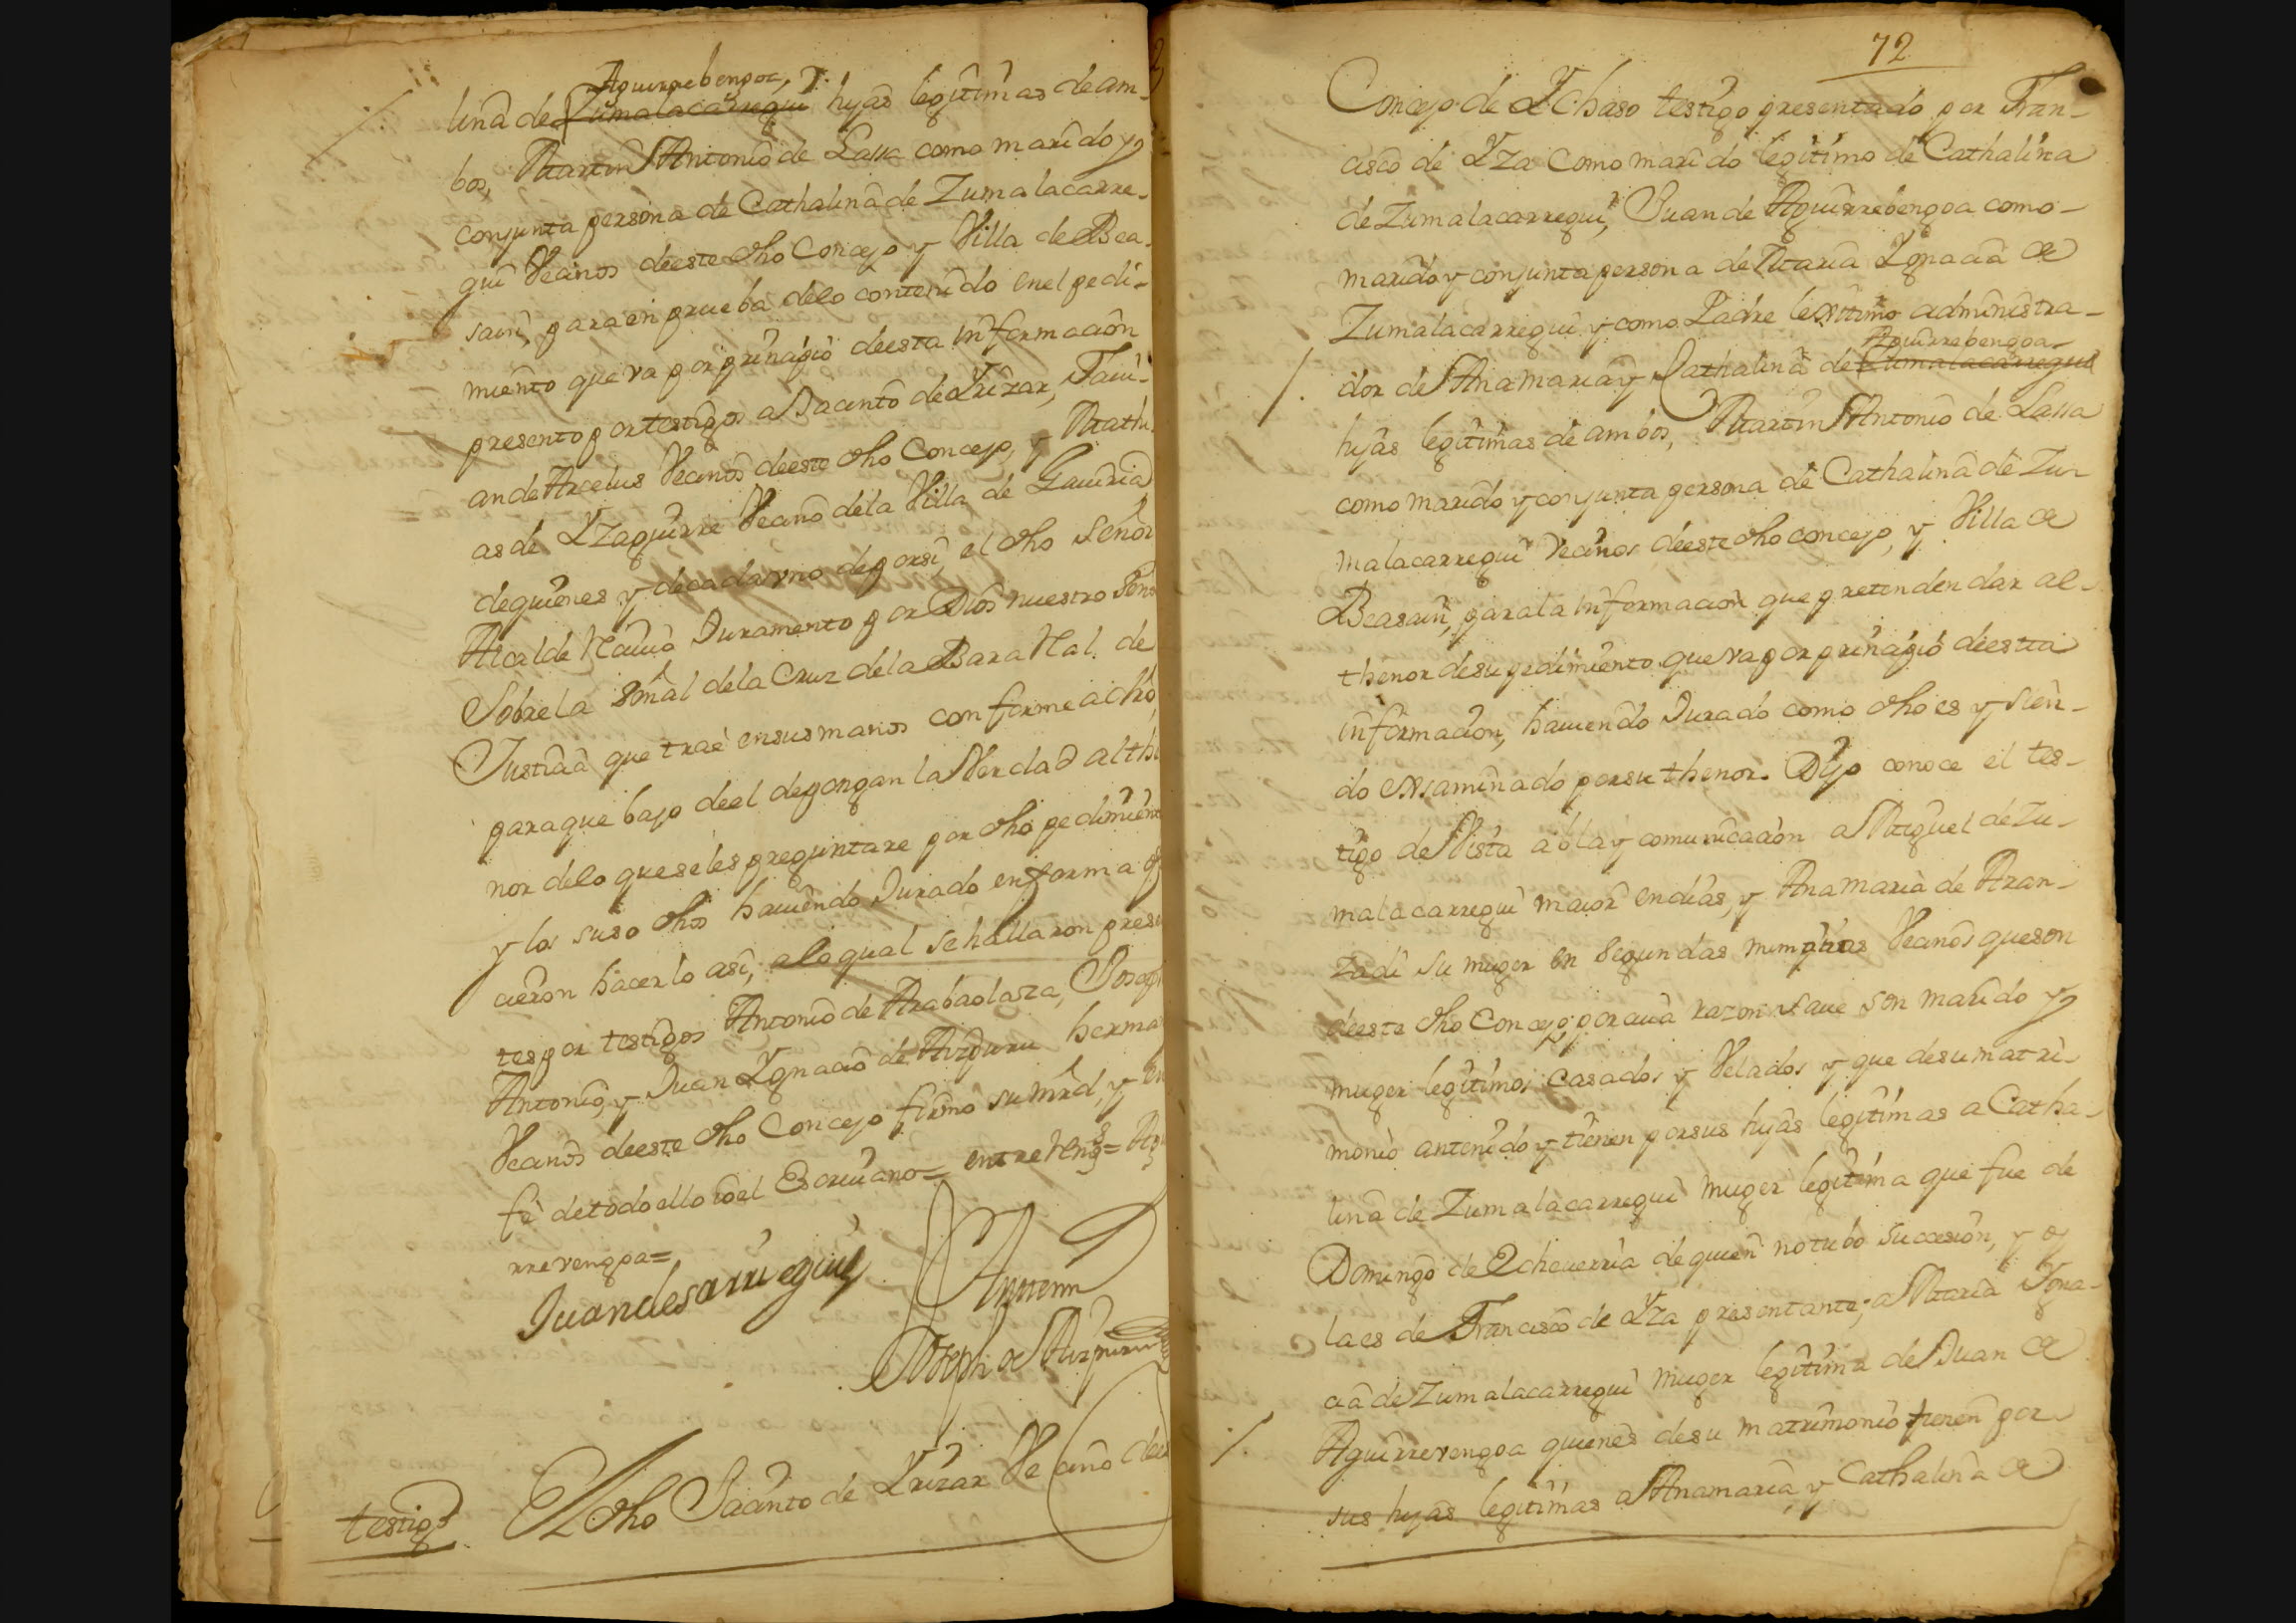 Aguirrebengoa,
lina de Zumalacarregui hijas legitimas de am-
bos, Martin Antonio de Lassa como marido y
conjunta persona de Cathalina de Zumalacarre-
gui Vecinos deeste dho Concejo y Villa de Bea-
sain, para en prueba delo contenido enel pedi-
miento que va por prinzipio deesta informacion
presento por testigos a Jacinto de Yrizar, Favi-
an de Arcelus Vecinos deeste dho Concejo, y Mathi-
as de Yzaguirre Vecino dela Villa de Gauiria
dequienes y decada vno deporsi, el dho Señor
Alcalde Reciuio Juramento por Dios nuestro Señor
Sobrela Señal dela Cruz dela Bara Real de
Justicia que trae ensus manos conforme a dro,
paraque bajo deel depongan la Verdad al the
nor delo quese les preguntare por dho pedimien
y los suso dhos hauiendo Jurado enforma of
cieron hacerlo asi, alo qual se hallaron presen
tes por testigos Antonio de Arabaolaza, Joseph
Antonio, y Juan Ygnacio de Aizpuru herma
Vecinos deeste dho Concejo firmo su mrd, y en
fe detodo ello io el Escriuano= entre Rengs= Agui
rrevengoa=
Juan de sarriegui
Antemi
Joseph de Aizpuru
testigo El dho Jacinto de Yrizar Vecino deeste
72
Concejo de Ychaso testigo presentado por Fran-
cisco de Yza como marido legitimo de Cathalina
de Zumalacarregui, Juan de Aguirrebengoa como
marido y conjunta persona de Maria Ygnacia de
Zumalacarregui y como Padre lexitimo administra-
Aguirrebengoa
dor de Ana maria y Cathalina de Zumalacarregui
hijas legitimas de ambos, Martin Antonio de Lassa
como marido y conjunta persona de Cathalina de Zu-
malacarregui Vecinos deeste dho concejo, y Villa de
Beasain, para la informacion que pretenden dar al-
thenor desu pedimiento que va por prinzipio deesta
informacion, hauiendo Jurado como dho es y sien-
do exsaminado por su thenor. Dijo conoce el tes-
tigo de Vista abla y comunicacion a Miguel de Zu-
malacarregui maior en dias, y Ana maria de Aran-
zadi su muger en Segundas numpcias Vecinos queson
deeste dho Concejo, por cuia razon saue son marido y
muger legitimos casados y Velados y que desu matri-
monio an tenido y tienen porsus hijas legitimas a Catha-
lina de Zumalacarregui muger legitima que fue de
Domingo de Echeuerria dequien no tubo Succesion, y oy
la es de Francisco de Yza presentante; a Maria Ygna-
cia de Zumalacarregui muger legitima de Juan de
Aguirrevengoa quienes desu matrimonio tienen por
sus hijas legitimas a Ana maria, y Cathalina de